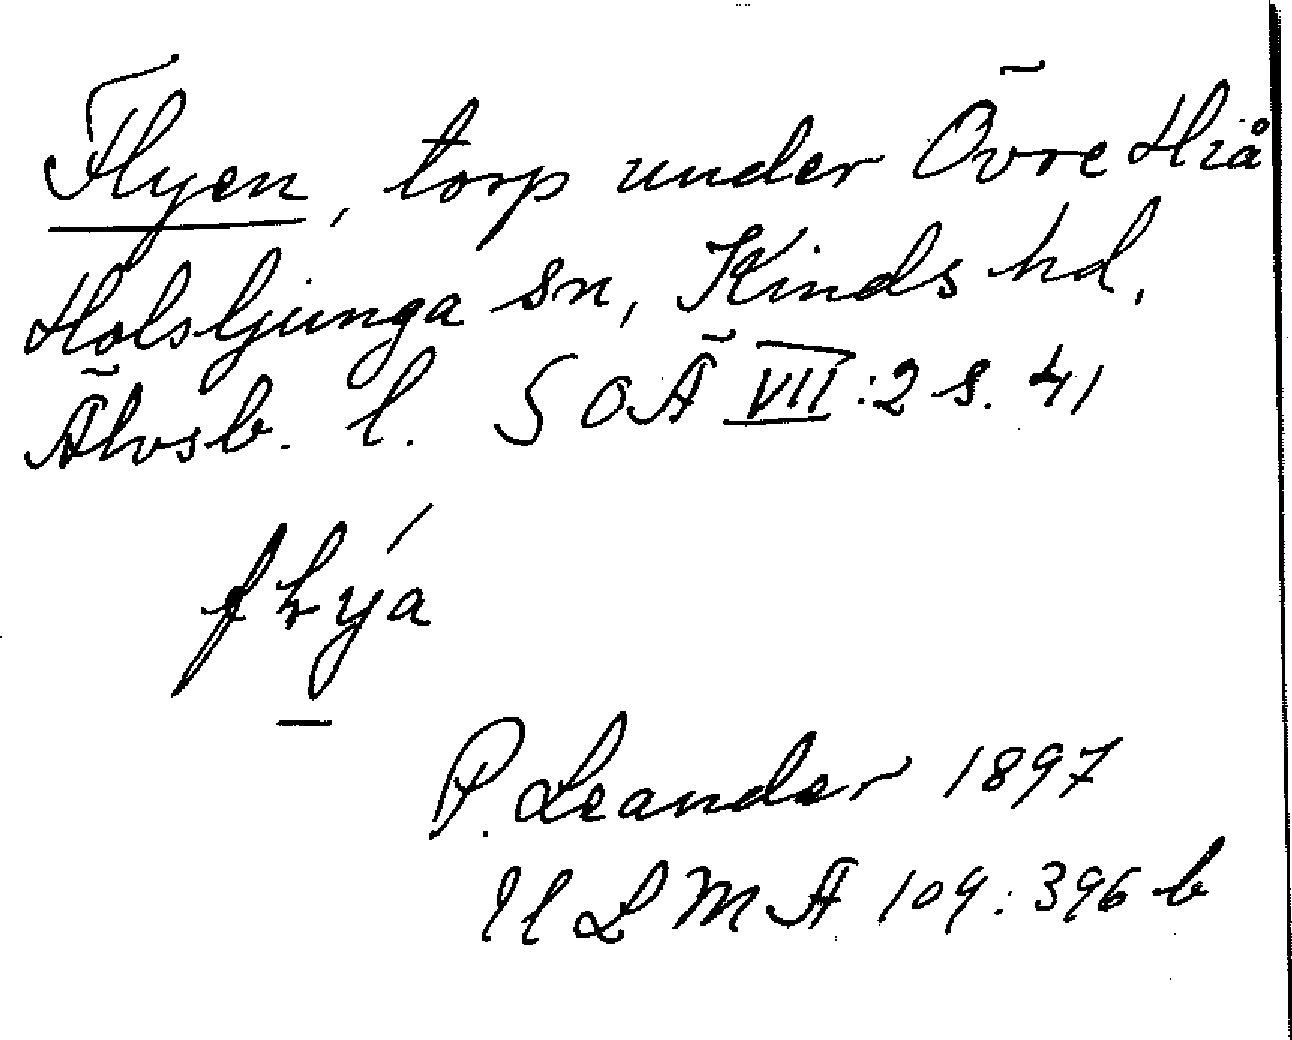 Flyen, torp under Övre Hiå
Holsljunga sn, Kinds hd,
Älvsb. l. SOÄ VII:2 s. 41
P. Leander 1897
ULMA 109:396 b